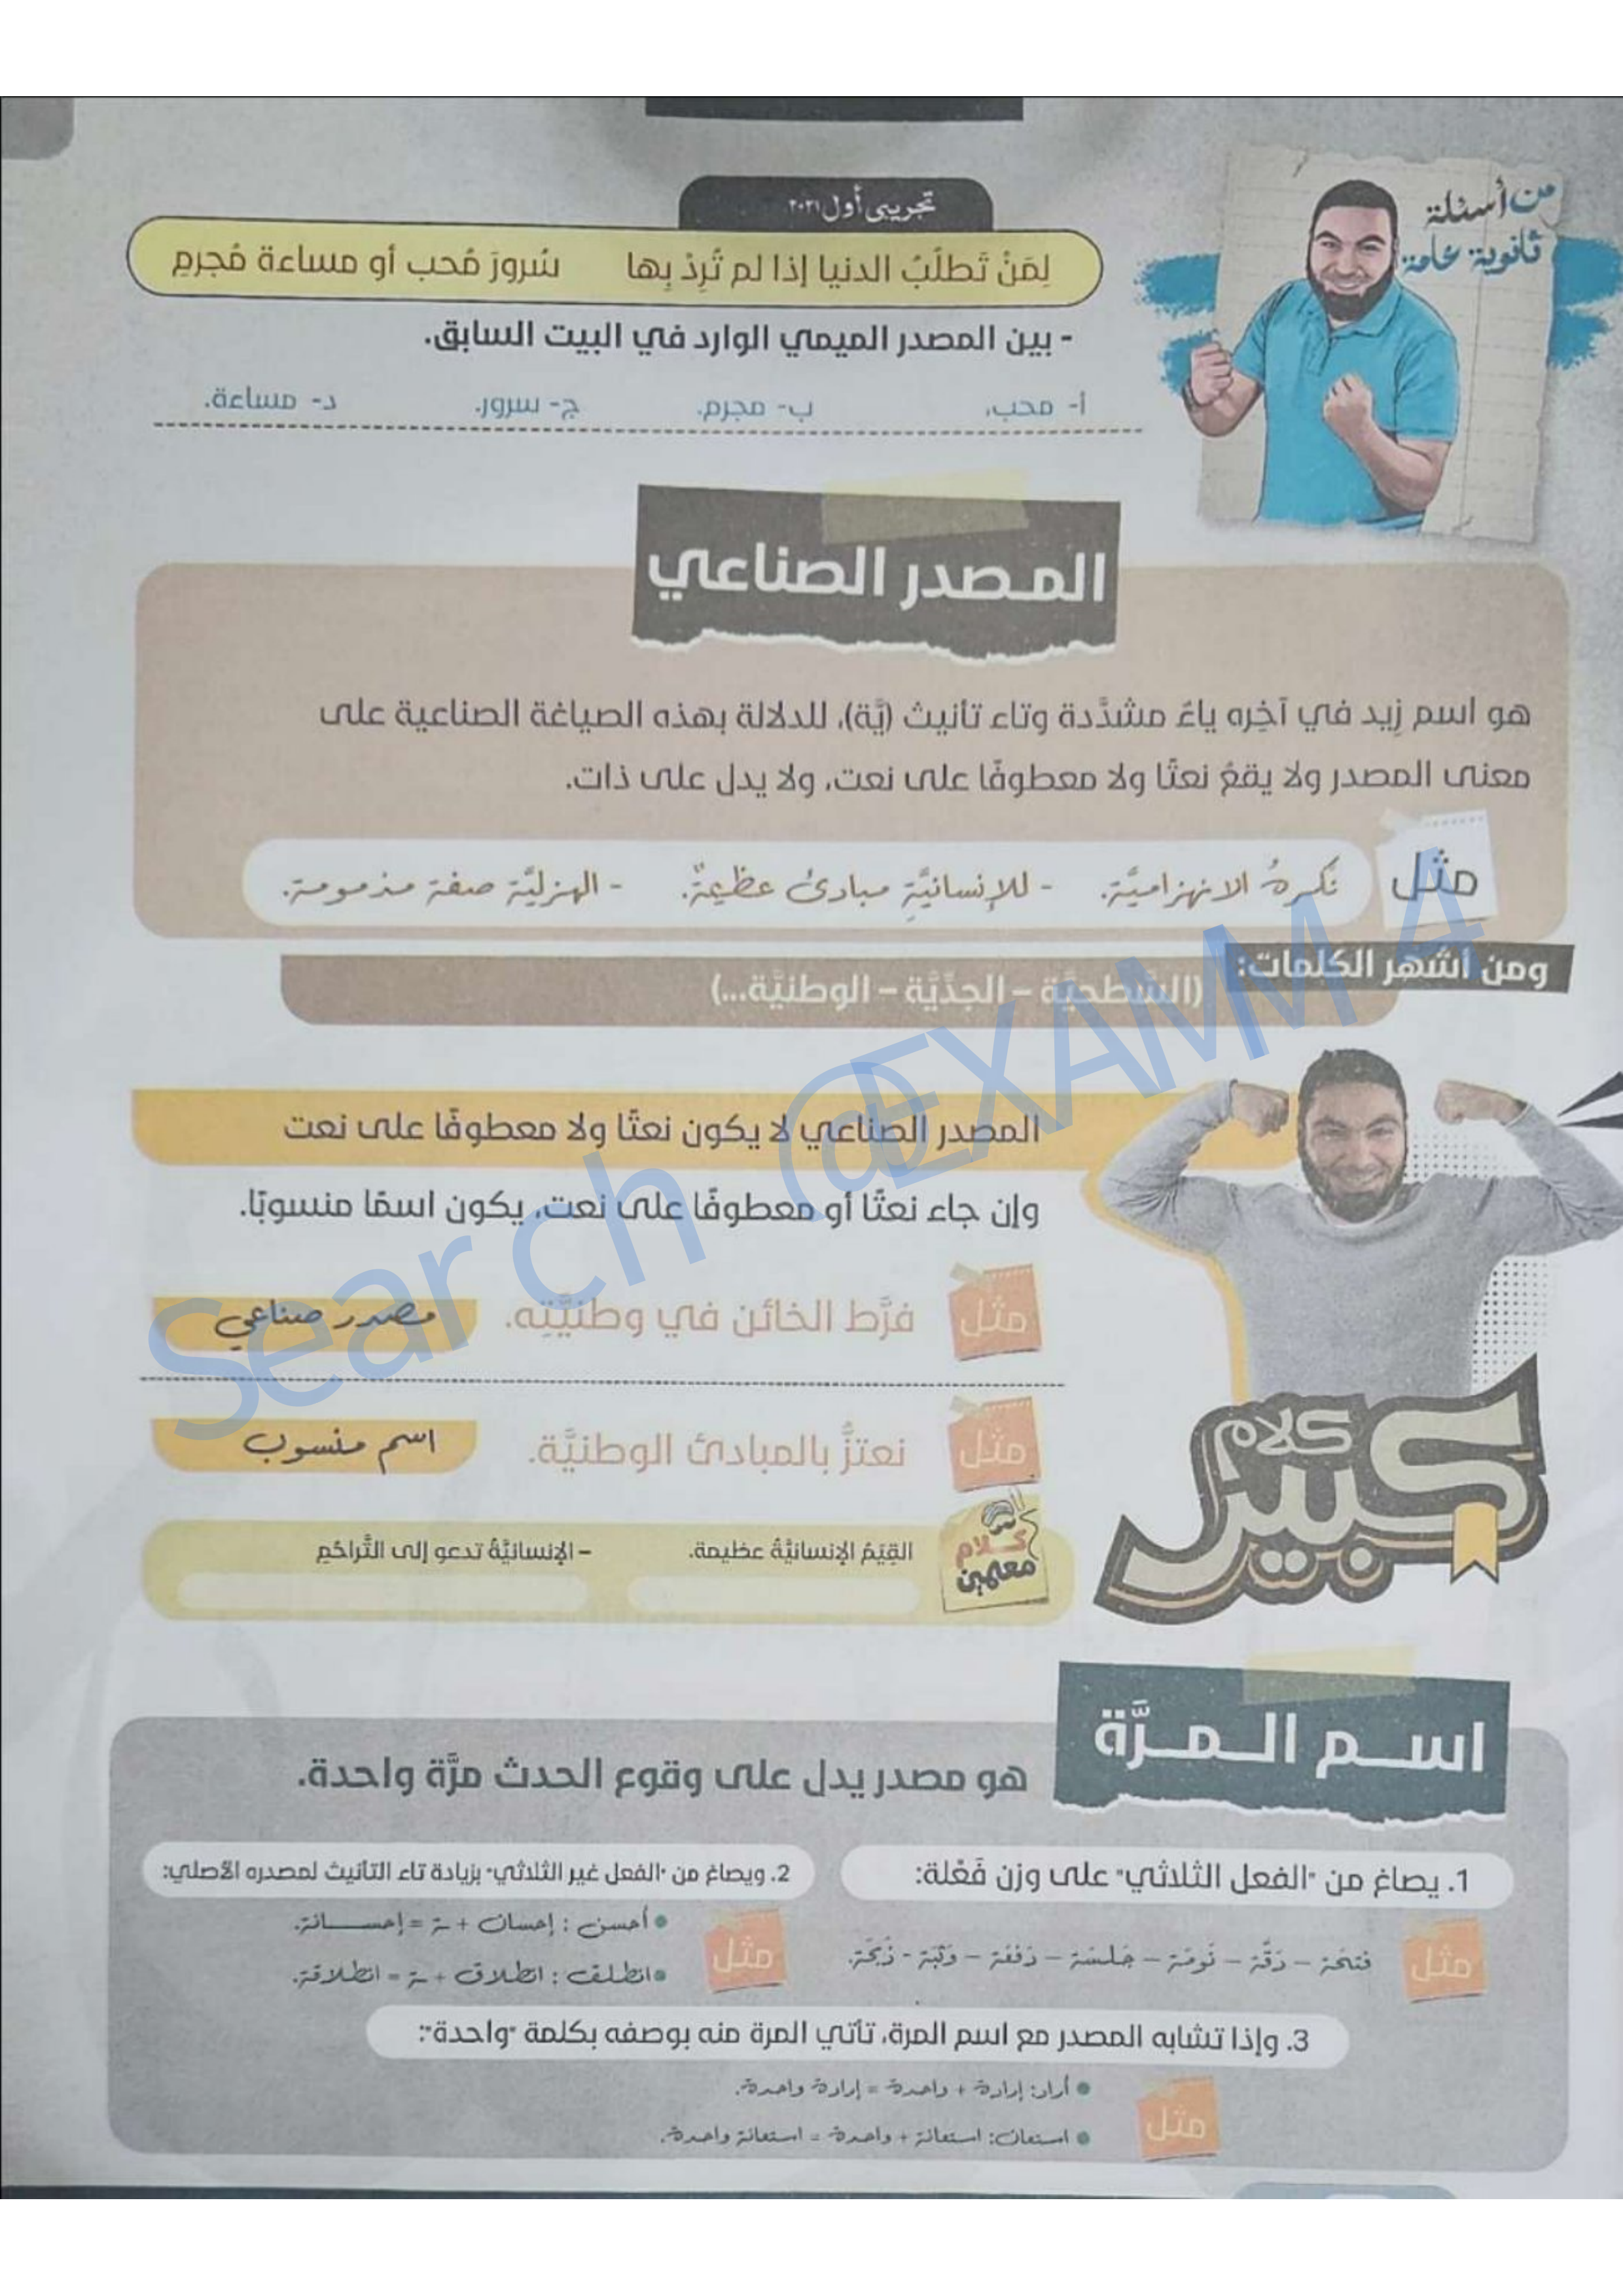 من أسئلة
ثانوية عامة
تجريبي أول ٢٠٢١
لِمَنْ تَطلُبُ الدنيا إذا لم تُرِدْ بِها سُرورَ مُحب أو مساءة مُجرمِ
- بين المصدر الميمي الوارد في البيت السابق.
أ- محب. ب- مجرم. ج- سرور. د- مساءة.
المصدر الصناعي
هو اسم زِيد في آخِره ياءٌ مشدَّدة وتاء تأنيث (يَّة)، للدلالة بهذه الصياغة الصناعية على
معنى المصدر ولا يقعُ نعتًا ولا معطوفًا على نعت، ولا يدل على ذات.
مثل
نكرهُ الانهزاميَّة. - للإنسانيَّةِ مبادئُ عظيمةٌ. - الهزليَّة صفة مذمومة.
ومن أشهر الكلمات:
(السَّطحيَّة – الجدِّيَّة – الوطنيَّة...)
المصدر الصناعي لا يكون نعتًا ولا معطوفًا على نعت
وإن جاء نعتًا أو معطوفًا على نعت، يكون اسمًا منسوبًا.
مثل
فرَّط الخائن في وطنيَّتِه.
مصدر صناعي
مثل
نعتزُّ بالمبادئ الوطنيَّة.
اسم منسوب
كلام
كبير
كلام
معلمين
القِيَمُ الإنسانيَّةُ عظيمة. – الإنسانيَّةُ تدعو إلى التَّراحُمِ
اسم المرَّة
هو مصدر يدل على وقوع الحدث مرَّة واحدة.
1. يصاغ من "الفعل الثلاثي" على وزن فَعْلة:
مثل
فَتحَة – دَقَّة – نَومَة – جَلسَة – دَفعَة – وَثبَة - ذَبحَة.
2. ويصاغ من "الفعل غير الثلاثي" بزيادة تاء التأنيث لمصدره الأصلي:
مثل
• أحسن : إحسان + ـة = إحسانة.
• انطلق : انطلاق + ـة = انطلاقة.
3. وإذا تشابه المصدر مع اسم المرة، تأتي المرة منه بوصفه بكلمة "واحدة":
مثل
• أراد: إرادة + واحدة = إرادة واحدة.
• استعان: استعانة + واحدة = استعانة واحدة.
Search @EXAMM 4